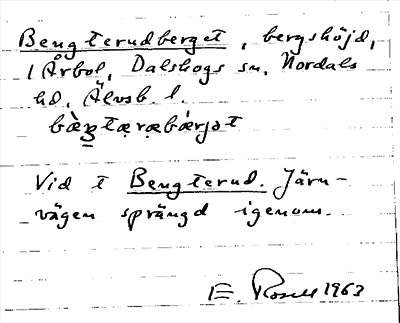 Bengterudberget, bergshöjd,
i Årbol, Dalskogs sn, Nordals
hd, Älvsb. l.
bæ̀ŋtæræbærjət
Vid t Bengterud. Järn-
vägen sprängd igenom.
E. Rosell 1963